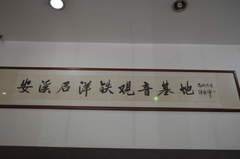 安溪石洋铁观音基地